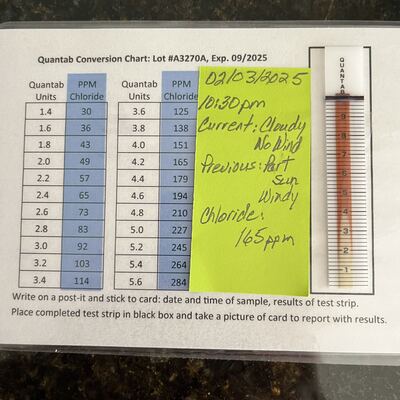 Quantab Conversion Chart: Lot #A3270A, Exp. 09/2025
Quantab Units PPM Chloride Quantab Units PPM Chloride
1.4 30 3.6 125
1.6 36 3.8 138
1.8 43 4.0 151
2.0 49 4.2 165
2.2 57 4.4 179
2.4 65 4.6 194
2.6 73 4.8 210
2.8 83 5.0 227
3.0 92 5.2 245
3.2 103 5.4 264
3.4 114 5.6 284
02/03/2025
10:30pm
Current: Cloudy
No Wind
Previous: Part
Sun
Windy
Chloride:
165ppm
QUANTAB
9
8
7
6
5
4
3
2
1
Write on a post-it and stick to card: date and time of sample, results of test strip.
Place completed test strip in black box and take a picture of card to report with results.